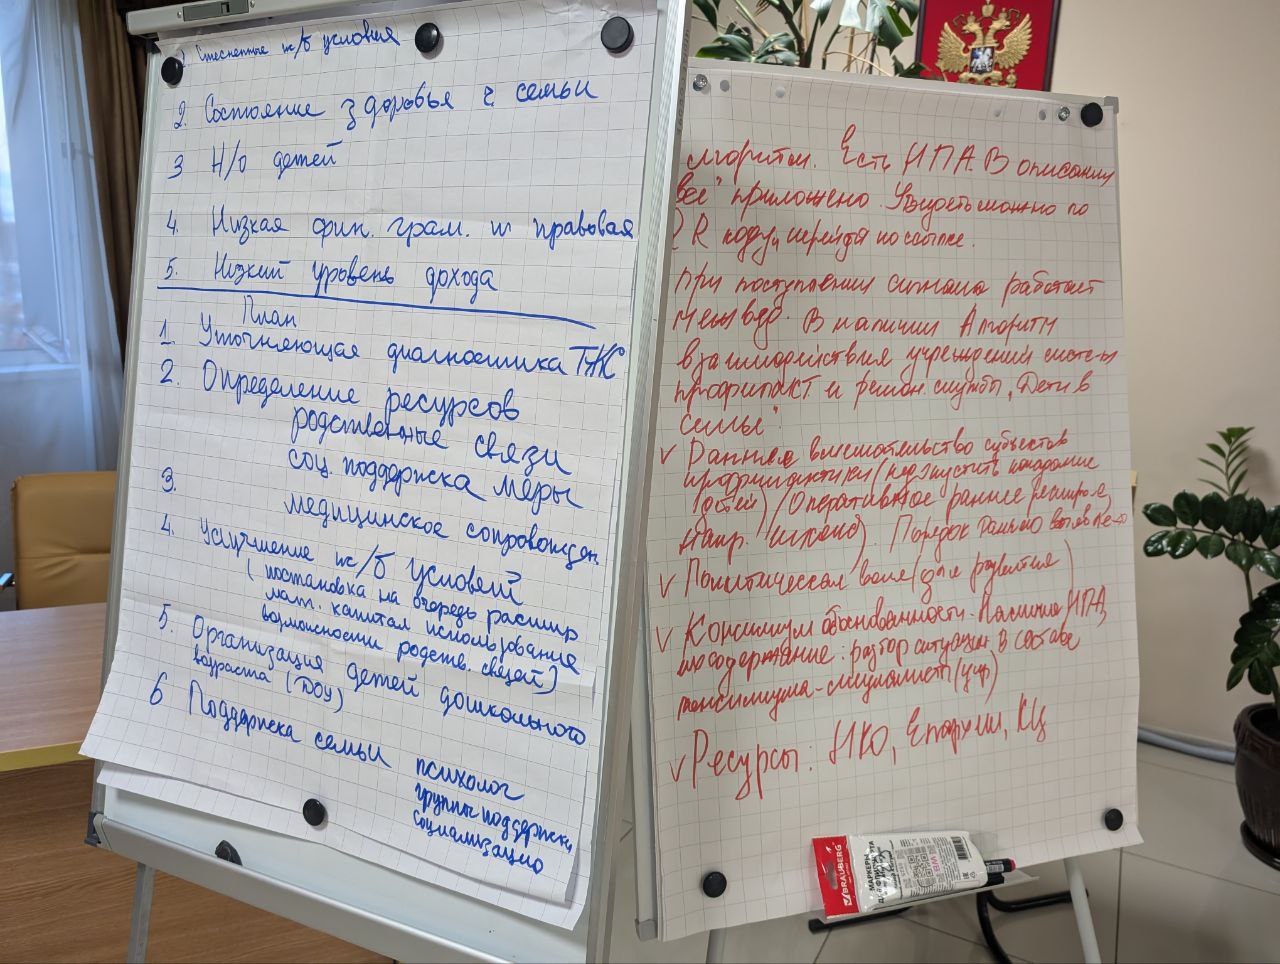 Стесненные ж/б условия
2. Состояние здоровья ч. семьи
3 Н/о детей
4. Низкая фин. грам. и правовая
5. Низкий уровень дохода
План
1. Уточняющая диагностика ТЖС
2. Определение ресурсов
родственные связи
соц. поддержка меры
3. медицинское сопровожден
4. Улучшение ж/б условий
(постановка на очередь расшир
мат. капитал использование
возможности родств. связей)
5. Организация детей дошкольного
возраста (ДОУ)
6 Поддержка семьи психолог
группы поддержки,
социализацию
лгоритм. Есть НПА. В описании
все" приложено. Увидеть можно по
QR коду, перейдя по ссылке.
при поступлении сигнала работает
Межвед. В наличии Алгоритм
взаимодействия учреждений систем
профилакт и регион. службы „Дети в
семье"
✓ Раннее вмешательство субъектов
профилактики (недопустить попадание
детей) / Оперативное раннее
напр. Порядок раннего
✓ Политическая воля (для развития)
✓ Консилиум обоснованности. Наличие НПА,
содержание: разбор ситуации, в составе
консилиума - специалисты (учр)
✓ Ресурсы: НКО, Епархии, КЦ
BRAUBERG